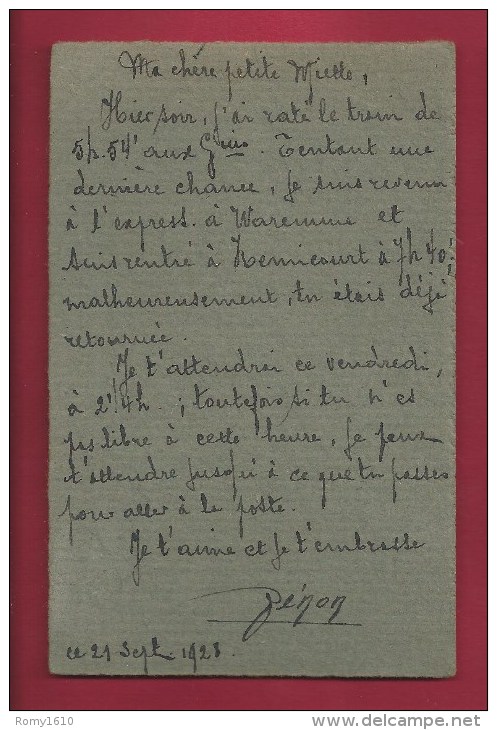 Ma chère petite Mielle,
Hier soir, j'ai raté le train de
5h.54' aux Gins. Tentant une
dernière chance, je suis revenu
à l'express à Waremme et
suis rentré à Remicourt à 7h40;
malheureusement, tu étais déjà
retournée.
Je t'attendrai ce vendredi,
à 2 1/4h.; toutefois si tu n'es
pas libre à cette heure, je peux
t'attendre jusqu'à ce que tu passes
pour aller à la poste.
Je t'aime et je t'embrasse
Zénon
ce 21 Sept. 1928.
Romy1610
delcampe.net